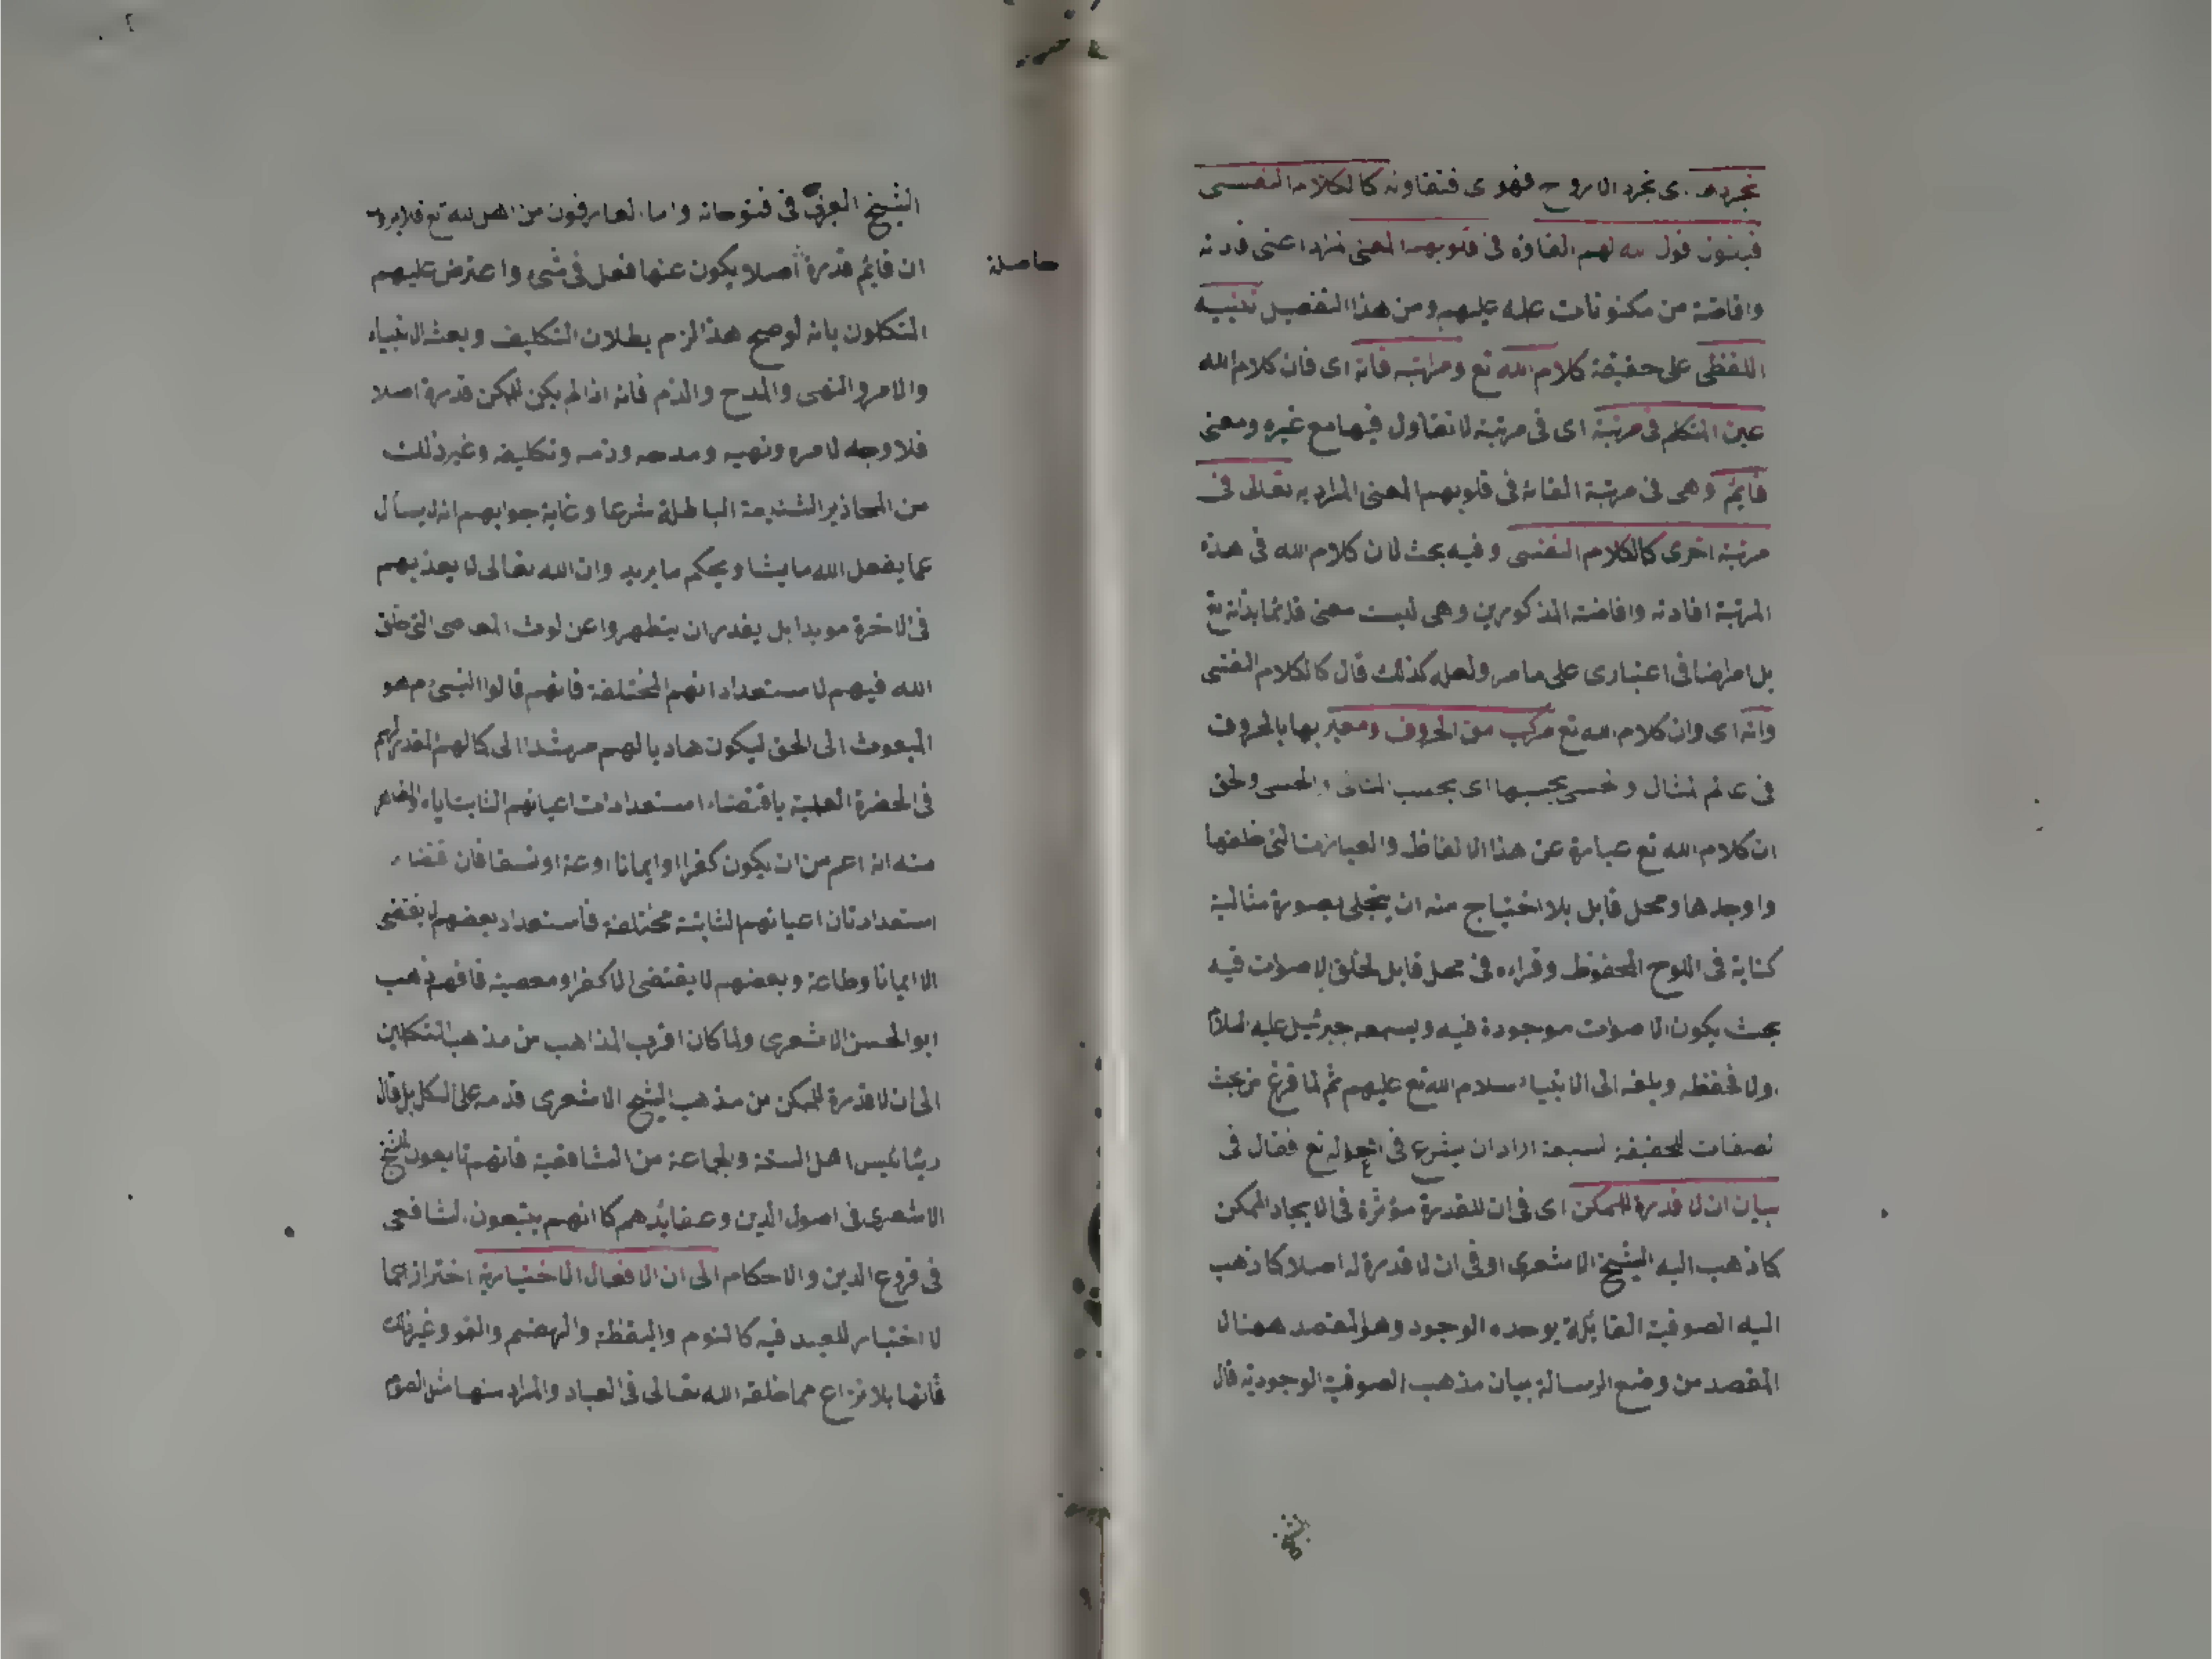 تجرده اى تجرد الارواح فهوى فتقاونه كالكلام النفسى
فيكون قول الله لهم القاؤه فى قلوبهم المعنى المراد اعنى فادته
وافاضته من مكنونات علمه عليهم ومن هذا التفصيل تنبيه
اللفظى على حقيقة كلام الله تع ومراتبه فانه اى فان كلام الله
عين المتكلم فى مرتبة اى فى مرتبة لا تقاول فيها مع غيره ومعنى
قايم وهى فى مرتبة القائه فى قلوبهم المعنى المراد به تعالى فى
مرتبة اخرى كالكلام النفسى وفيه بحث لان كلام الله فى هذه
المرتبة افادته وافاضته المذكورين وهى ليست معنى قايما بذاته تع
بل امر اضافى اعتبارى على ما مر ولعله كذلك قال كالكلام النفسى
وانه اى وان كلام الله تع مركب من الحروف ومعبر بها بالحروف
فى عالم المثال والحسى بحسبها اى بحسب المثالى والحسى والحق
ان كلام الله تع عبارة عن هذا الالفاظ والعبارت التى خلقها
واوجدها ومحل قابل بلا احتياج منه ان يتجلى بصورة مثالية
كتابة فى اللوح المحفوظ وقراءه فى محل قابل لخلق الاصوات فيه
بحث يكون الاصوات موجودة فيه ويسمعه جبرئيل عليه السلام
ولا فحفظه وبلغه الى الانبياء سلام الله تع عليهم ثم لما فرغ من بحث
لصفات الحقيقة لسبعة اراد ان يشرع فى افعاله تع فقال فى
بيان ان لا قدرة للممكن اى فى ان للقدرة مؤثرة فى الايجاد الممكن
كما ذهب اليه الشيخ الاشعرى او فى ان لا قدرة له اصلا كما ذهب
اليه الصوفية القايلة بوحده الوجود وهو المقصد ههنا لا
المقصد من وضع الرسالة بيان مذهب الصوفية الوجودية قال
الشيخ
الشيخ العربى فى فتوحاته واما العارفون من اهل الله تع فلا يرون
ان قايم قدرة اصلا يكون عنها فعل فى شئ واعترض عليهم
حاصلة
المتكلمون بانه لو صح هذا لزم بطلان التكليف وبعث الانبياء
والامر والنهى والمدح والذم فانه اذا لم يكن للمكن قدرة اصلا
فلا وجه لامره ونهيه ومدحه وذمه وتكليفه وغير ذلك
من المحاذير الشنيعة الباطلة شرعا وغاية جوابهم انه لا يسأل
عما يفعل الله ما يشا ويحكم ما يريد وان الله تعالى لا يعذبهم
فى الاخرة موبدا بل يقدر ان يتطهروا عن لوث المعاصى التى خلق
الله فيهم لاستعداداتهم المختلفة فانهم قالوا النبى م هو
المبعوث الى الحق ليكون هاديا لهم مرشدا الى كمالهم المقدر لهم
فى الحضرة العلمية باقتضاء استعدادات اعيانهم الثابتة اياه والظاهر
منه انه اعم من ان يكون كفرا او ايمانا او عة او فسقا فان قضاء
استعدادتان اعيانهم الثابتة مختلفة فاستعداد بعضهم لا يقتضى
الا ايمانا وطاعة وبعضهم لا يقتضى الا كفرا ومعصية فافهم ذهب
ابو الحسن الاشعرى ولما كان اقرب المذاهب من مذهب المتكلمين
الى ان لا قدرة للمكن من مذهب الشيخ الاشعرى قدمه على الكل بل قال
اهل السنة والجماعة من الشافعية فانهم تابعون الشيخ
الاشعرى فى اصول الدين وعقايدهم كما انهم يتبعون الشافعى
فى فروع الدين والاحكام الى ان الافعال الاختيارية احترازا عما
لا اختيار للعبد فيه كالنوم واليقظة والهضم والنمو وغير ذلك
فانها بلا نزاع مما خلقه الله تعالى فى العباد والمراد منها مثل الصوم